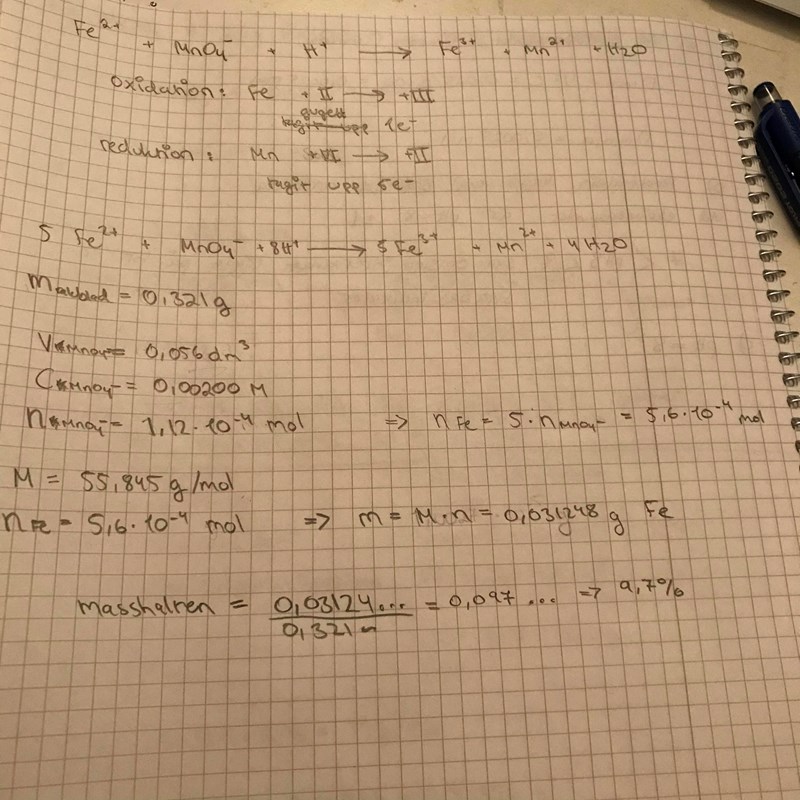 Fe²⁺ + MnO₄⁻ + H⁺ → Fe³⁺ + Mn²⁺ + H₂O
oxidation: Fe +II → +III
1e⁻
reduktion: Mn +VII → +II
tagit upp 5e⁻
5 Fe²⁺ + MnO₄⁻ + 8H⁺ → 5 Fe³⁺ + Mn²⁺ + 4H₂O
m = 0,321g
V MnO₄⁻ = 0,056 dm³
C MnO₄⁻ = 0,00200 M
n MnO₄⁻ = 1,12·10⁻⁴ mol => n Fe = 5·n MnO₄⁻ = 5,6·10⁻⁴ mol
M = 55,845 g/mol
n Fe = 5,6·10⁻⁴ mol => m = M·n = 0,031248 g Fe
masshalten = 0,03124... / 0,321 = 0,097 ... => 9,7%